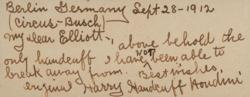 Berlin Germany Sept 28-1912
(Circus-Busch)
My dear Elliott - I above behold the
only handcuff I have not been able to
break away from. Best wishes,
Harry Handcuff Houdini